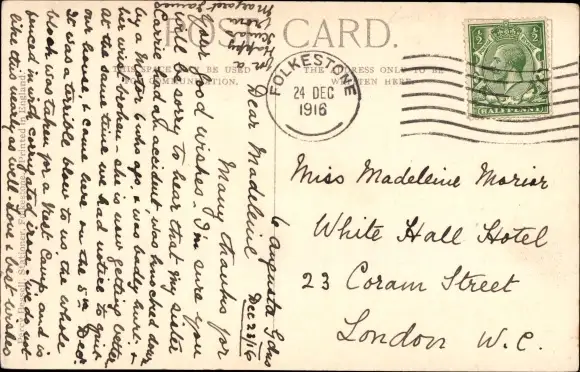 POST CARD.
THIS SPACE MAY BE USED
FOR COMMUNICATION.
THE ADDRESS ONLY TO BE
WRITTEN HERE.
FOLKESTONE
24 DEC
1916
HALFPENNY
Miss Madeleine
White Hall Hotel
23 Coram Street
London W.C.
6 Augusta Gdns
Dec 23/16
Dear Madeleine
Many thanks for
your good wishes. I'm sure you
will be sorry to hear that my sister
Carrie had an accident, was knocked down
by a Motor 6 wks ago, & was badly hurt. &
her wrist broken - she is now getting better
at the same time we had notice to quit
our house, & came here on the 5th Decr
It was a terrible blow to us, the whole
block was taken for a Rest Camp and is
fenced in with corrugated iron. We do not
like this nearly as well - love & best wishes
for a
Happy
Xmas
from
Margaret James
Printed in England